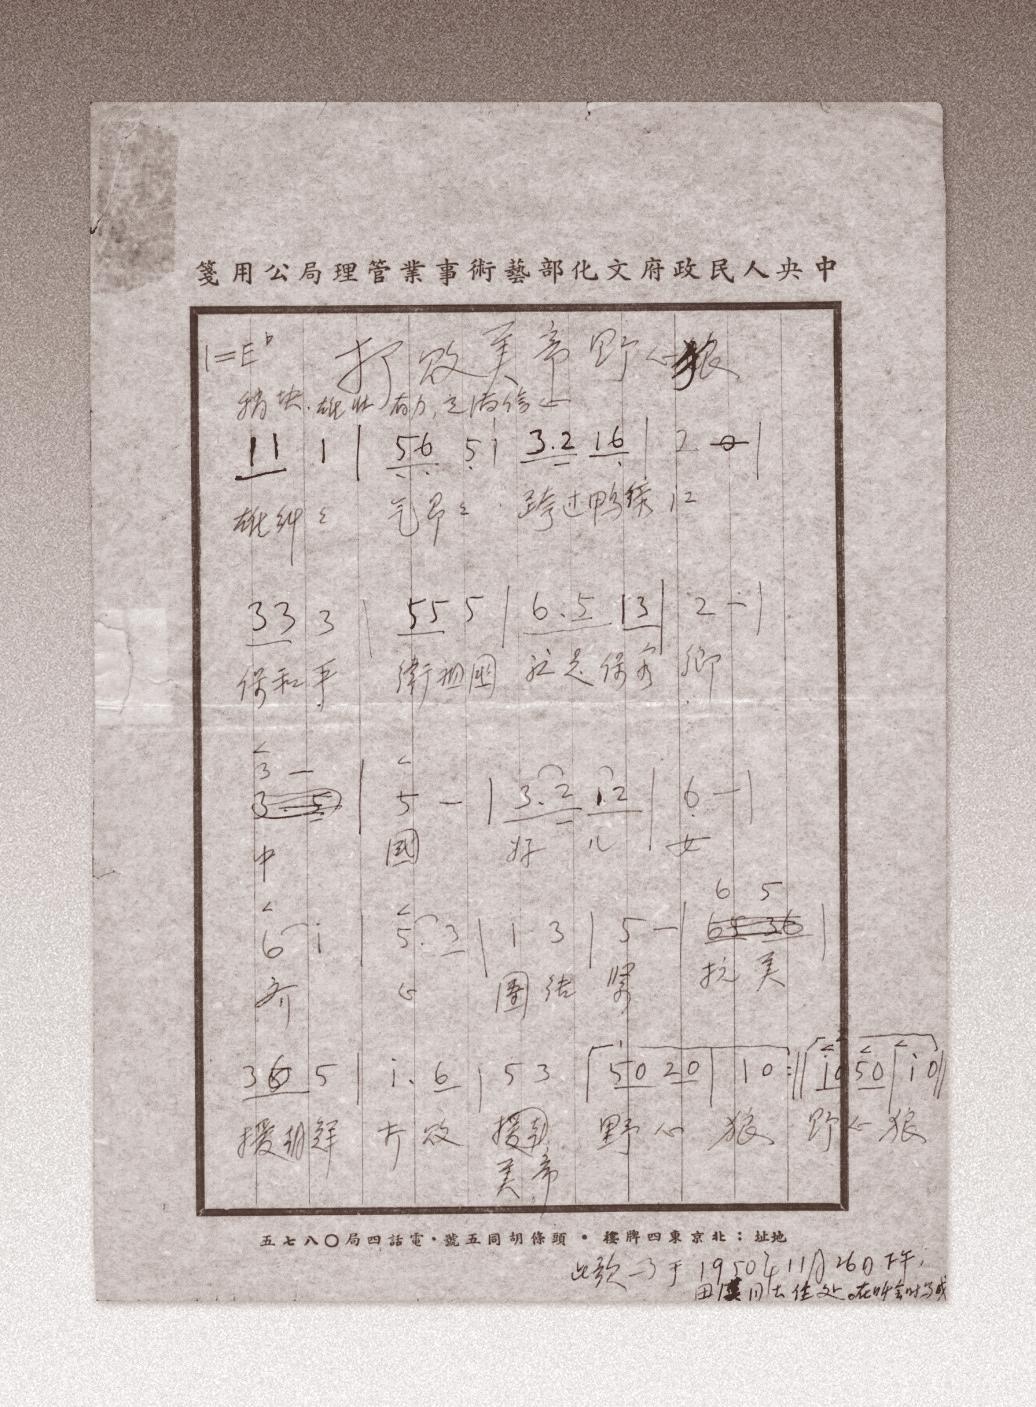 中央人民政府文化部藝術事業管理局公用箋
1=E♭ 打败美帝野心狼
稍快.雄壮有力,充满信心
11 1 | 56 5i | 3.2 16 | 2 - |
雄糾〻 气昂〻 跨过鸭綠江
33 3 | 55 5 | 6.5 13 | 2 - |
保和平 衛祖國 就是保家鄉
3 -
3 5 | 5 - | 3.2 12 | 6 - |
中 國 好 儿 女
6 5
6 i | 5.3 | i 3 | 5 - | 65 36 |
齐 心 團结 緊 抗美
36 5 | i.6 | 53 | 50 20 | 10 :|| i0 50 | i0 ||
援朝鮮 打败 野心 狼 野心狼
美帝
地址：北京東四牌樓·頭條胡同五號·電話四局〇八七五
此歌写于1950年11月26日下午,
田漢同志住处。在听会时写成